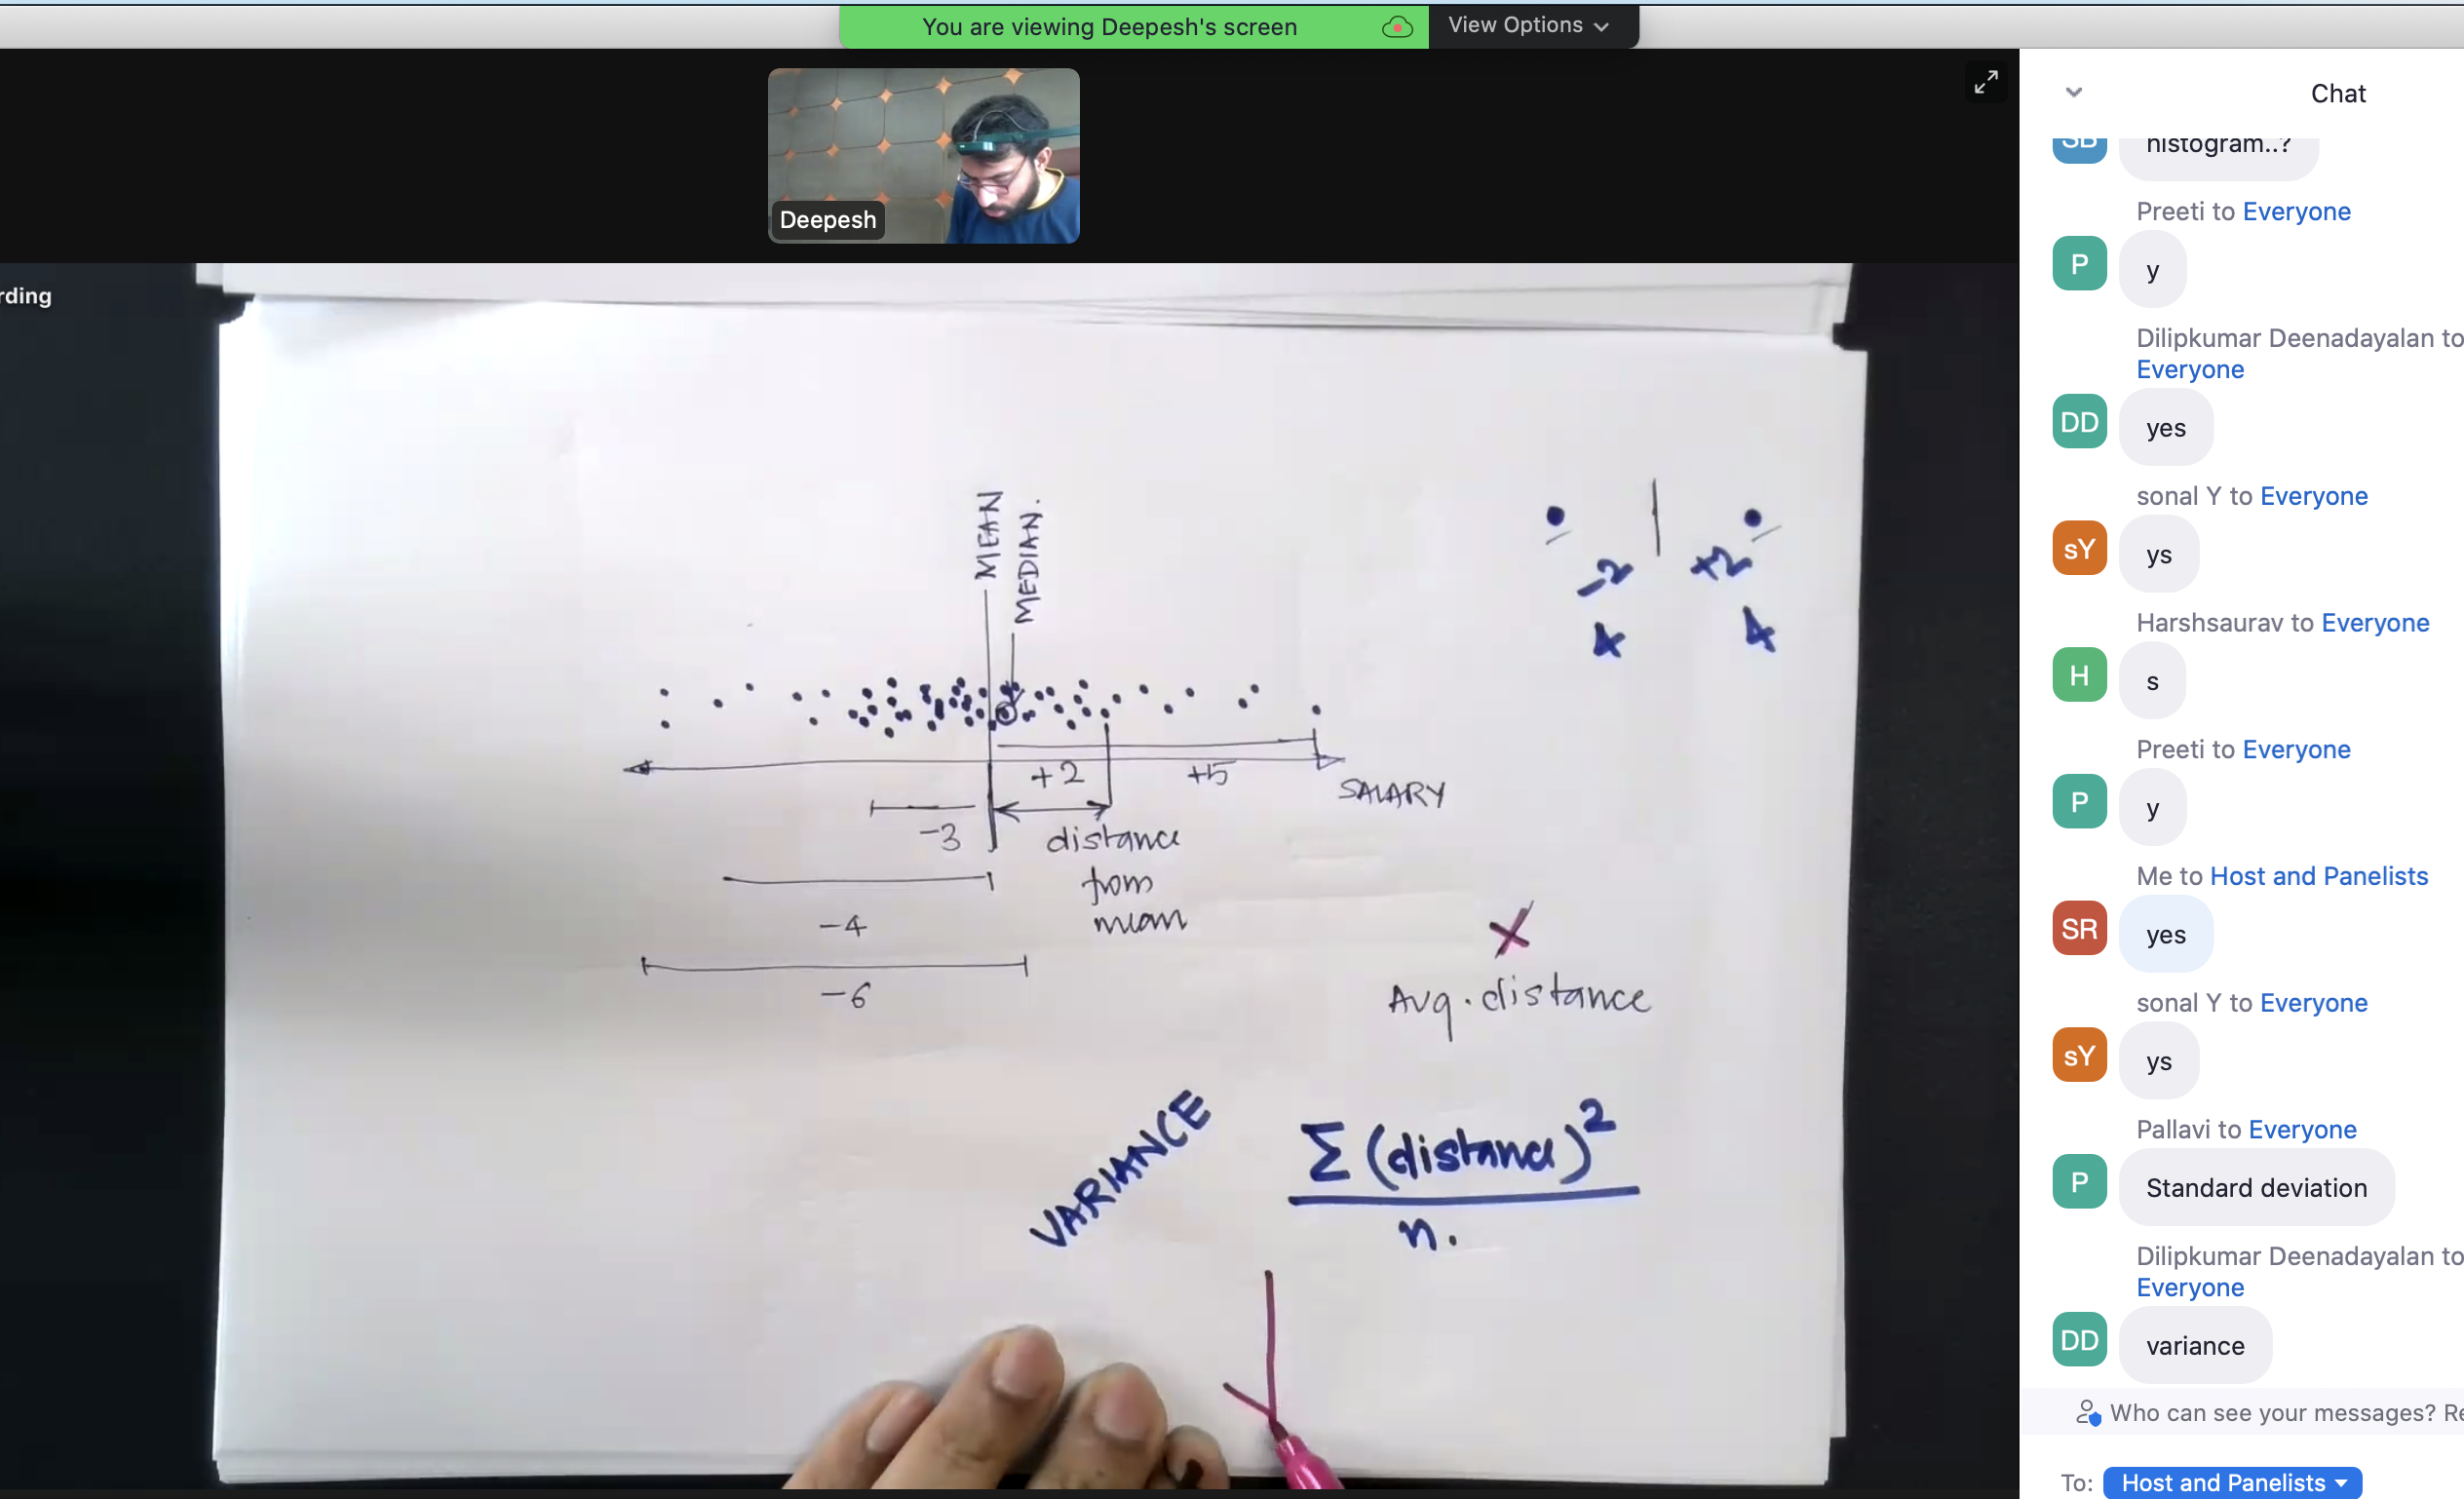 You are viewing Deepesh's screen
View Options
Deepesh
rding
MEAN
MEDIAN.
-2
+2
4
4
+2
+5
SALARY
-3
distance
from
mean
-4
-6
X
Avg. distance
VARIANCE
Σ (distance)²
n.
Chat
histogram..?
Preeti to Everyone
P
y
Dilipkumar Deenadayalan to
Everyone
DD
yes
sonal Y to Everyone
sY
ys
Harshsaurav to Everyone
H
s
Preeti to Everyone
P
y
Me to Host and Panelists
SR
yes
sonal Y to Everyone
sY
ys
Pallavi to Everyone
P
Standard deviation
Dilipkumar Deenadayalan to
Everyone
DD
variance
Who can see your messages? Re
To: Host and Panelists